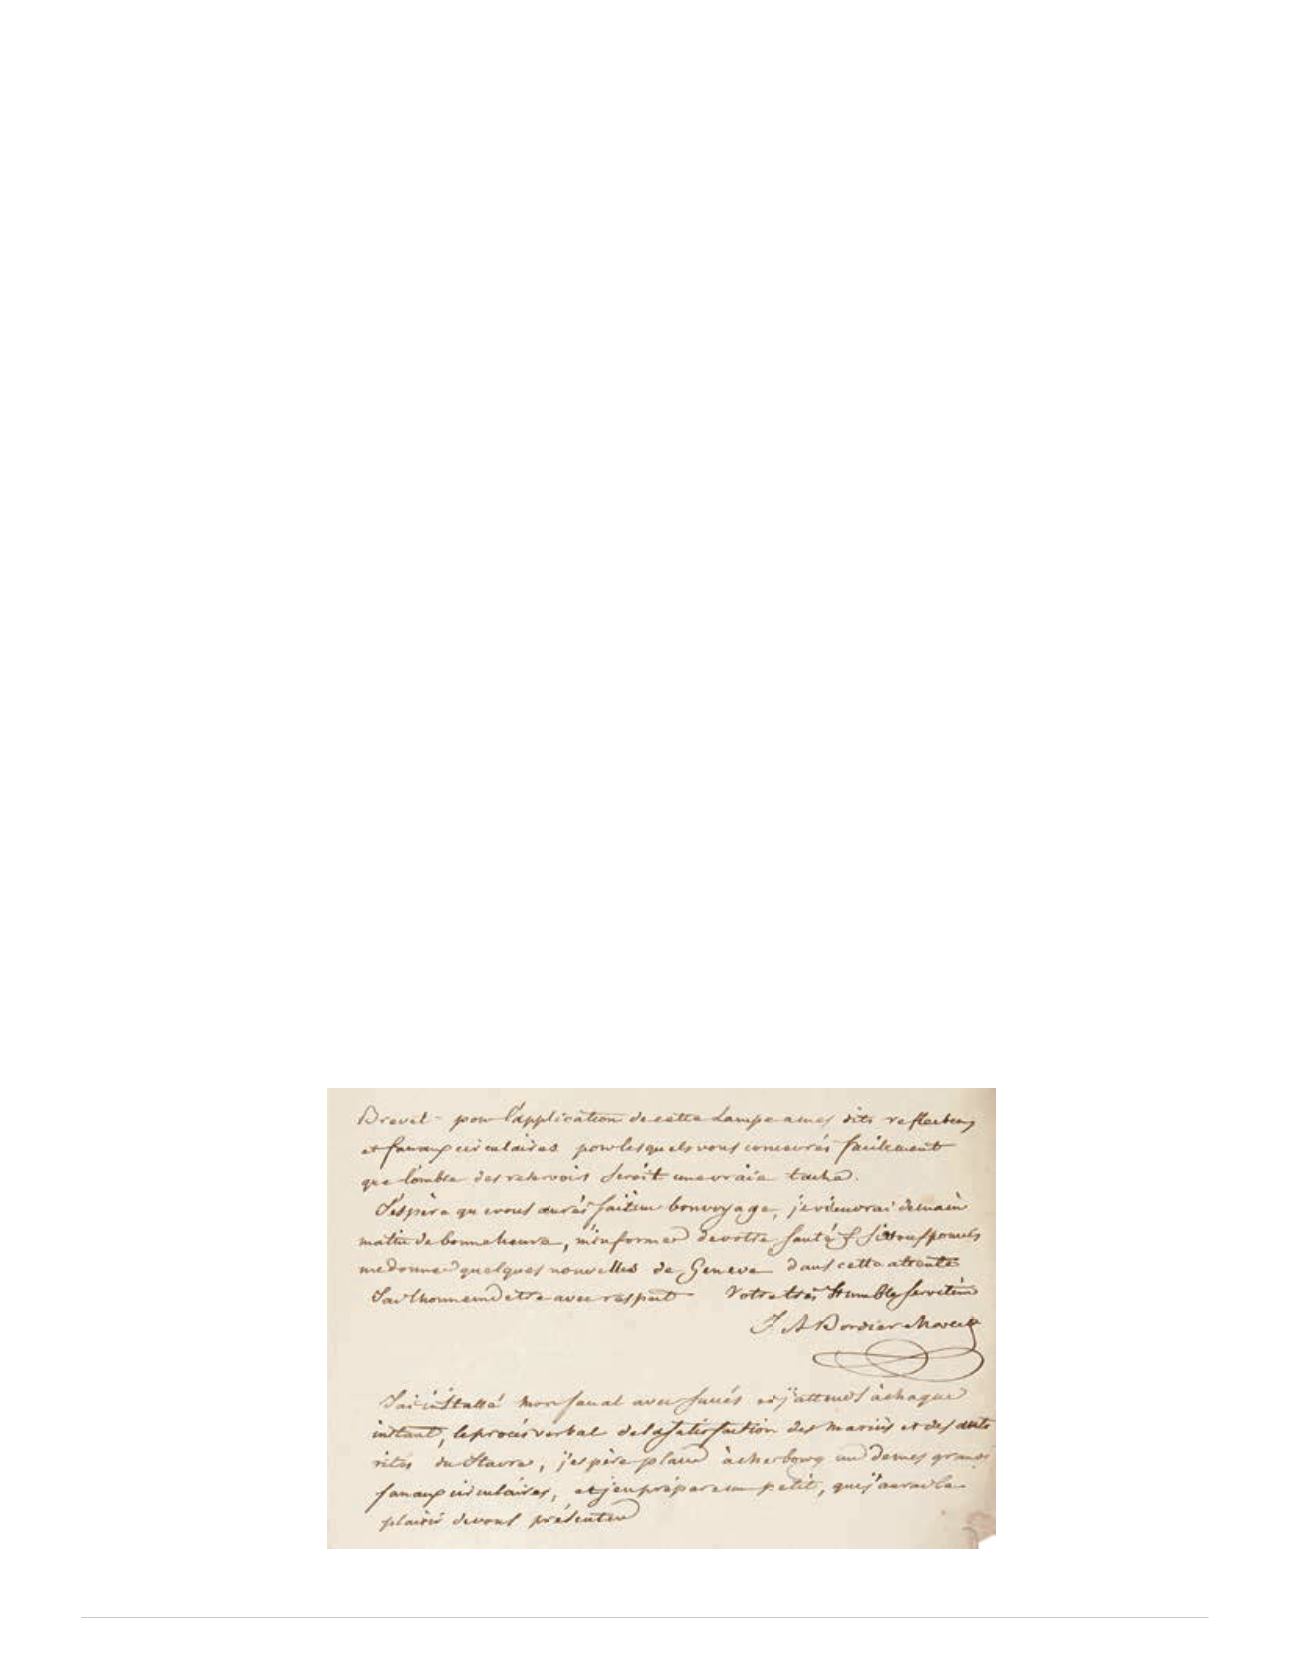 Brevet - pour l'application de cette Lampe a mes dits reflecteurs
et fanaux circulaires pour lesquels vous concevrés facilement
que l'ombre des reservoirs seroit une vraie tache.
J'espère que vous aurés fait un bon voyage, je viendrai demain
matin de bonne heure, m'informer de votre santé & si vous pouvés
me donner quelques nouvelles de Geneve dans cette attente
J'ai l'honneur d'etre avec respect Votre très Humble serviteur
J. A Bordier Marcet
J'ai installé mon fanal avec succés et j'attends à chaque
instant, le procès verbal de la satisfaction des marins et des auto
rités du Havre, j'espère placer à cherbourg un de mes grands
fanaux circulaires, et j'en prépare un petit, que j'aurai le
plaisir de vous présenter